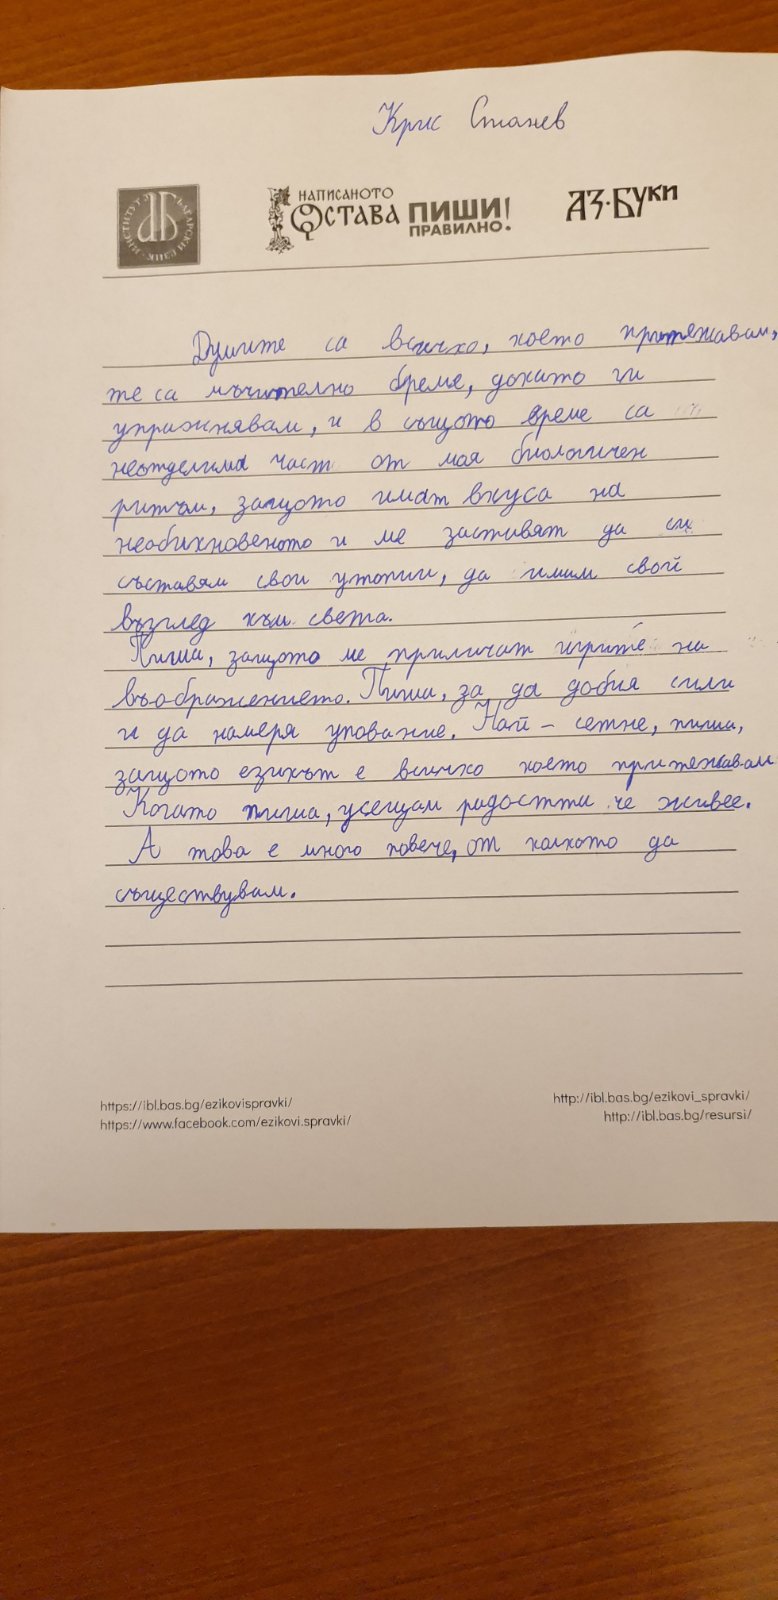 Крис Станев
ИНСТИТУТ ЗА БЪЛГАРСКИ ЕЗИК
НАПИСАНОТО
ОСТАВА ПИШИ!
ПРАВИЛНО.
АЗ·БУКИ
Думите са всичко, което притежавам,
те са мъчително бреме, докато ги
упражнявам, и в същото време са
неотделима част от мая биологичен
ритъм, защото имат вкуса на
необикновеното и ме заставят да си
съставям свои утопии, да имам свой
възглед към света.
Пиша, защото ме привличат игрите на
въображението. Пиша, за да добия сили
и да намеря упование. Най - сетне, пиша,
защото езикът е всичко което притежавам
Когато пиша, усещам радостта че живее.
А това е много повече, от колкото да
съществувам.
https://ibl.bas.bg/ezikovispravki/
https://www.facebook.com/ezikovi.spravki/
http://ibl.bas.bg/ezikovi_spravki/
http://ibl.bas.bg/resursi/